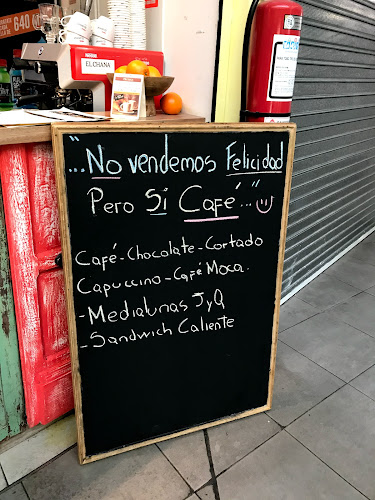 640
EL CHANA
"...No vendemos Felicidad
Pero Si Café..."
Café - Chocolate - Cortado
Capuccino - Café Moca.
- Medialunas JyQ
- Sandwich Caliente